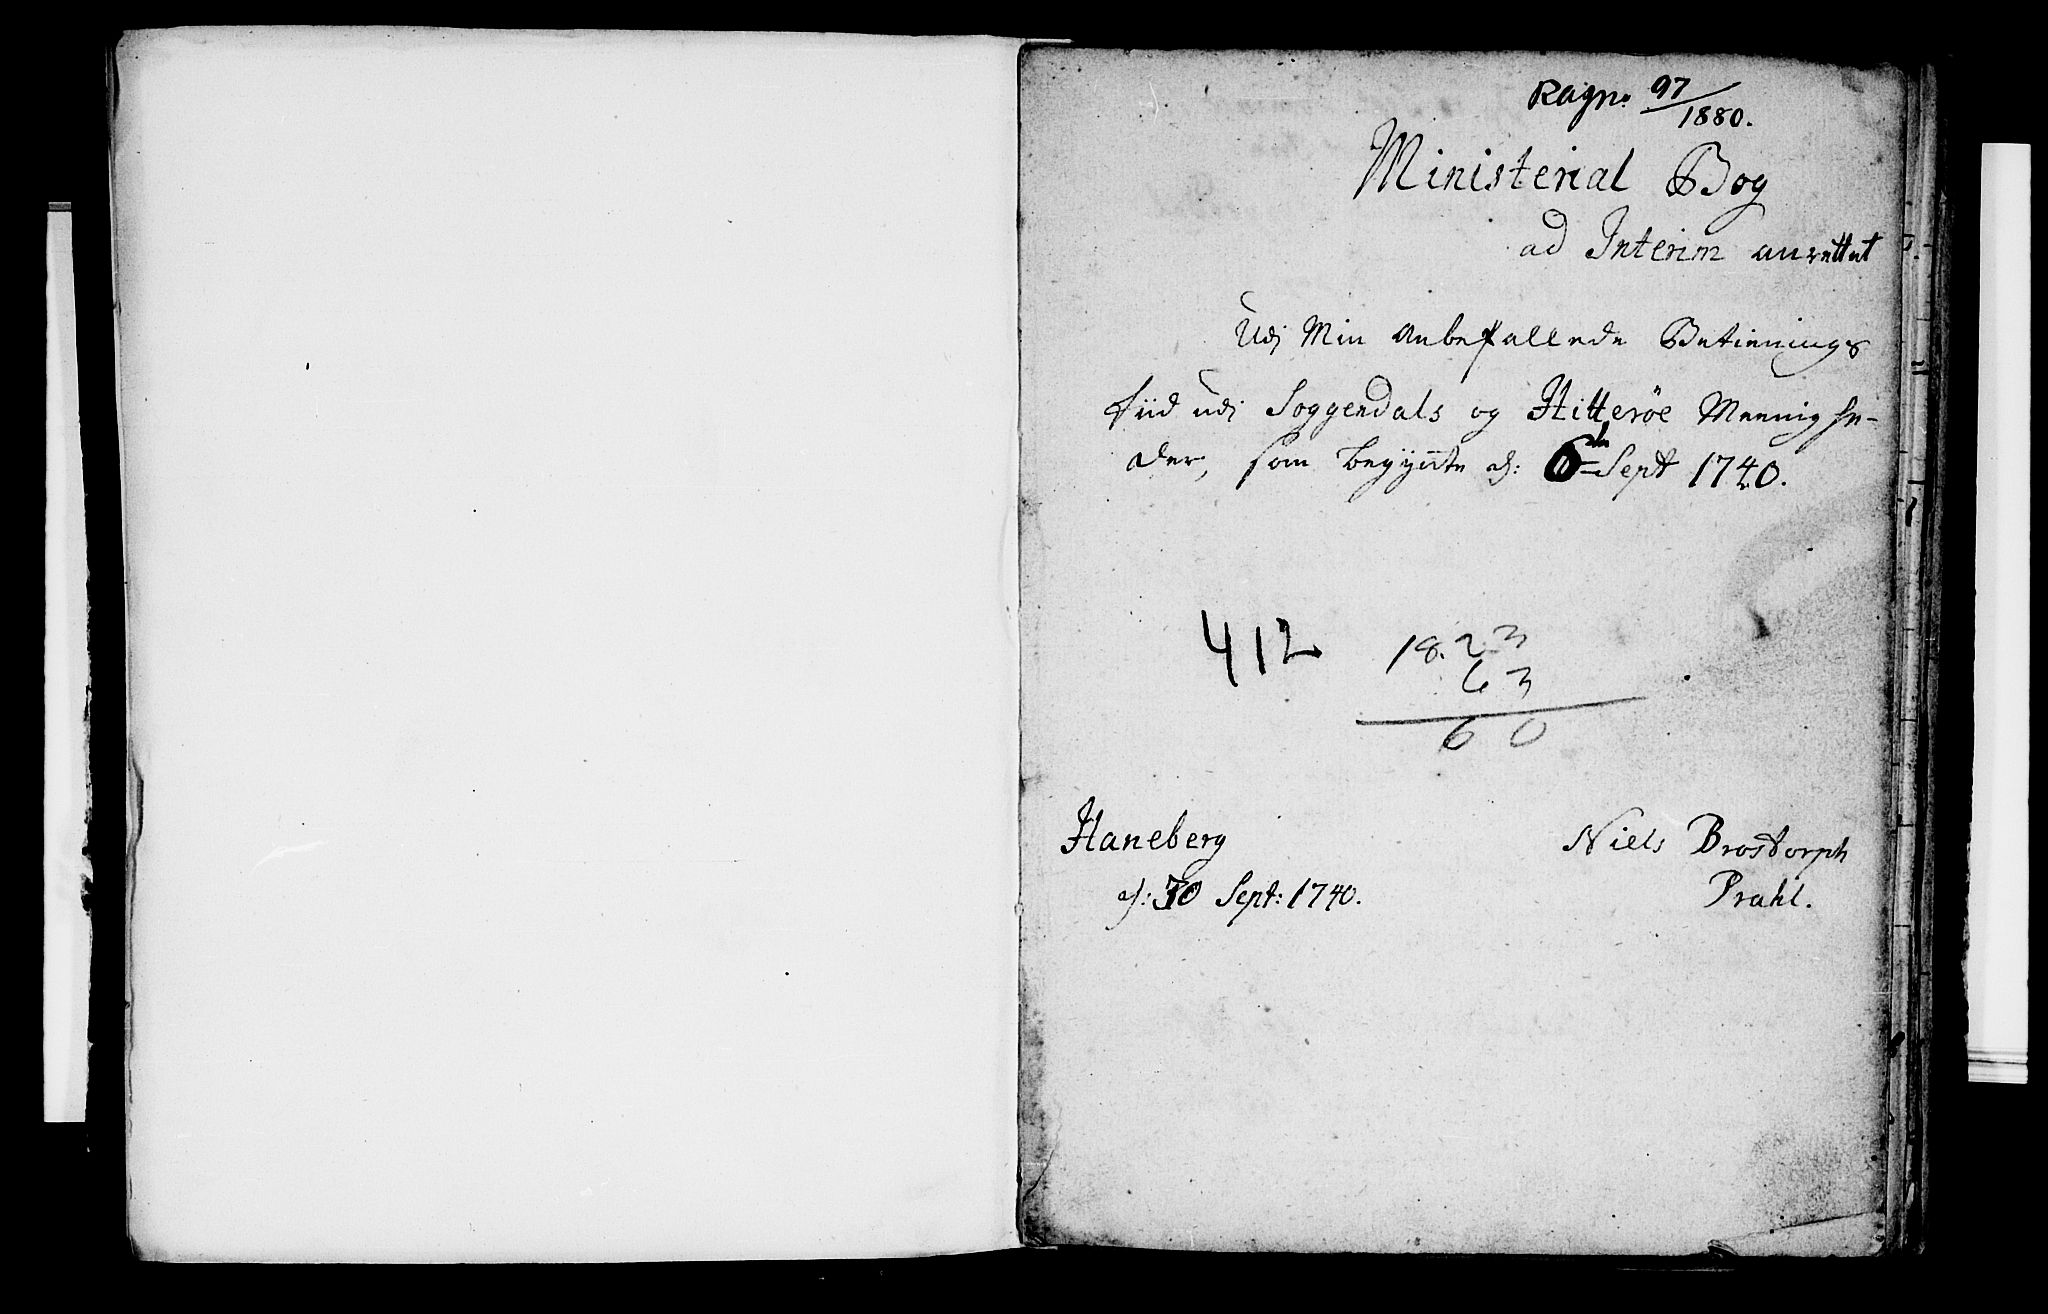 Ragn. 97/1880.
Ministerial Bog
ad Interim anrettet
Udj Min Anbefallede Betienings
Tiid udj Soggendals og Hitterøe Meenighe-
der, som begyntte d: 6te Sept 1740.
412 18.23
63
60
Haneberg Niels Brostorph
d: 30 Sept: 1740. Prahl.